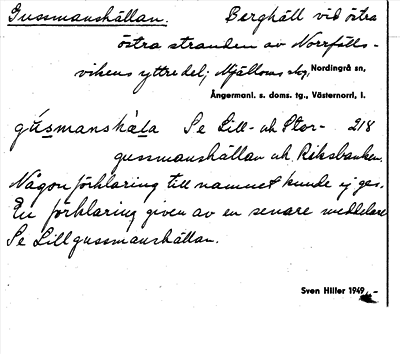 Gussmanshällan. Berghäll vid östra
östra stranden av Norrfälls-
vikens yttre del; Mjältoms skg, Nordingrå sn,
Ångermanl. s. doms. tg., Västernorrl, l.
gu̇smanshäla Se Lill- och Stor- 218
gussmanshällan och Riksbanken.
Någon förklaring till namnet kunde ej ges.
En förklaring given av en senare meddelare
Se Lillgussmanshällan.
Sven Hiller 1949